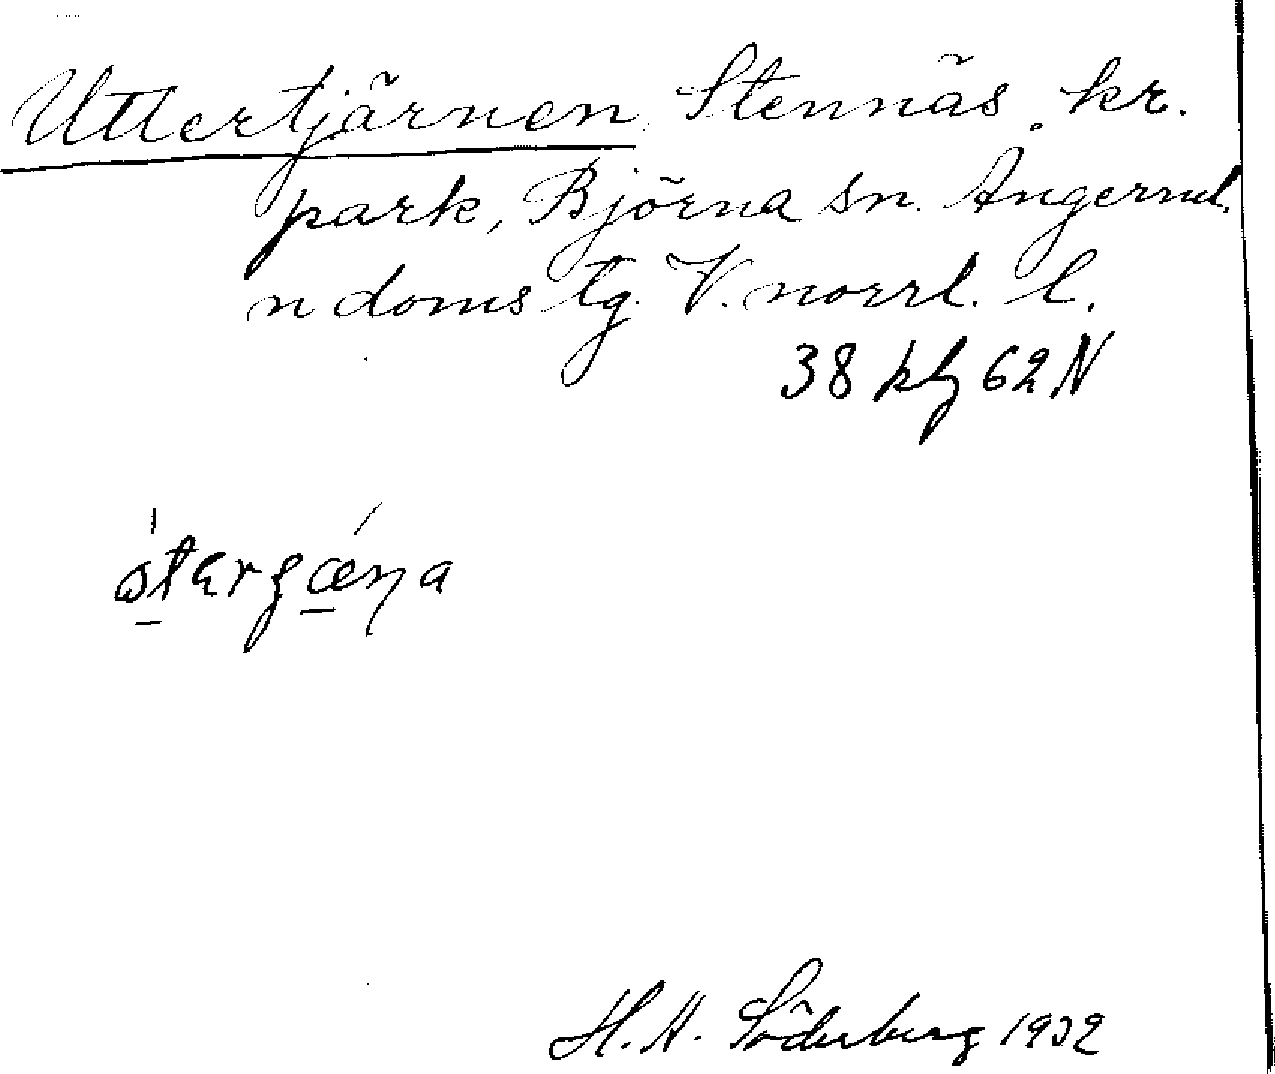 Uttertjärnen, Stennäs kr.
park, Björna sn. Ångerml.
n doms tg. V. norrl. l.
38 kf 62 N
H. A. Söderberg 1932